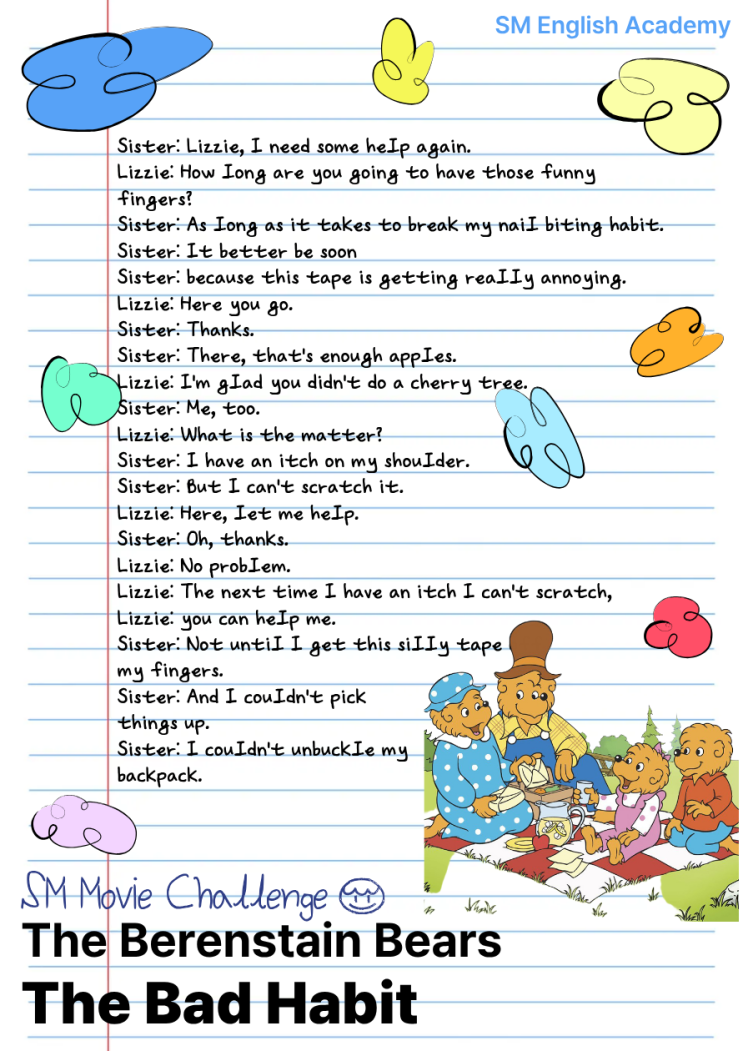 SM English Academy
Sister: Lizzie, I need some help again.
Lizzie: How long are you going to have those funny
fingers?
Sister: As long as it takes to break my nail biting habit.
Sister: It better be soon
Sister: because this tape is getting really annoying.
Lizzie: Here you go.
Sister: Thanks.
Sister: There, that's enough apples.
Lizzie: I'm glad you didn't do a cherry tree.
Sister: Me, too.
Lizzie: What is the matter?
Sister: I have an itch on my shoulder.
Sister: But I can't scratch it.
Lizzie: Here, let me help.
Sister: Oh, thanks.
Lizzie: No problem.
Lizzie: The next time I have an itch I can't scratch,
Lizzie: you can help me.
Sister: Not until I get this silly tape
my fingers.
Sister: And I couldn't pick
things up.
Sister: I couldn't unbuckle my
backpack.
SM Movie Challenge
The Berenstain Bears
The Bad Habit